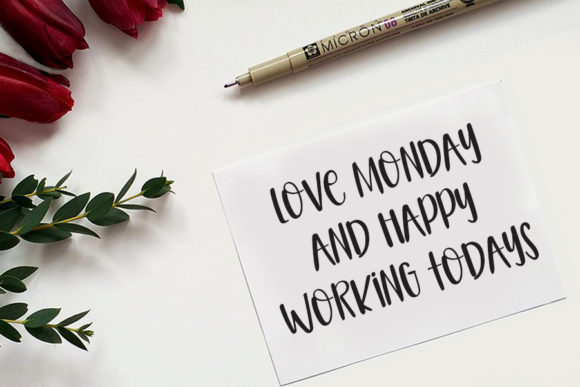 MICRON
TINTA DE ARCHIVO
LOVE MONDAY
AND HAPPY
WORKING TODAYS